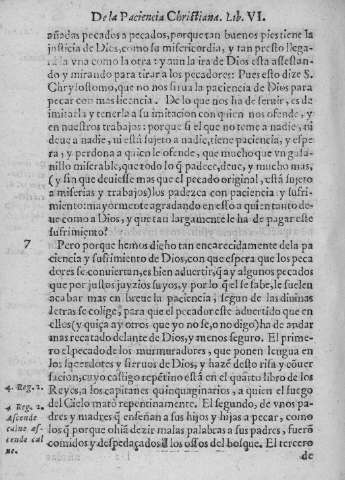 De la Paciencia Christiana. Lib. VI.
añadas pecados a pecados, porque tan buenos pies tiene la
justicia de Dios, como su misericordia, y tan presto llega-
rà la vna como la otra: y aun la ira de Dios està assestan-
do y mirando para tirar a los pecadores: Pues esto dize S.
Chrysostomo, que no nos sirua la paciencia de Dios para
pecar con mas licencia. De lo que nos ha de seruir, es de
imitarla y tenerla a su imitacion con quien nos ofende, y
en nuestros trabajos: porque si el que no teme a nadie, ni
deue a nadie, ni està sujeto a nadie, tiene paciencia, y espe
ra, y perdona a quien le ofende, que mucho que vn gusa-
nillo miserable, que todo lo q̃ padece, deue, y mucho mas,
(y sin que deuiesse mas que el pecado original, està sujeto
a miserias y trabajos) los padezca con paciencia y sufri-
miento: mayormente agradando en esso a quien tanto de-
ue como a Dios, y que tan largamente le ha de pagar este
sufrimiento?
7 Pero porque hemos dicho tan encarecidamente de la pa
ciencia y sufrimiento de Dios, con que espera que los peca
dores se conuiertan, es bien aduertir, q̃ ay algunos pecados
que por justos juyzios suyos, y por lo q̃ el se sabe, le suelen
acabar mas en breue la paciencia, segun de las diuinas
letras se colige, para que el pecador este aduertido que en
ellos (y quiça ay otros que yo no se, o no digo) ha de andar
mas recatado delante de Dios, y menos seguro. El prime-
ro el pecado de los murmuradores, que ponen lengua en
los sacerdotes y sieruos de Dios, y hazẽ desto risa y cõuer
sacion; cuyo castigo repẽtino està en el quarto libro de los
4. Reg. 1. Reyes, a los capitanes quinquaginarios, a quien el fuego
4 Reg. 2. del Cielo matò repentinamente. El segundo, de vnos pa-
Ascende dres y madres q̃ enseñan a sus hijos y hijas a pecar, como
calue as- los q̃ porque ohiã dezir malas palabras a sus padres, fuerõ
cende cal comidos y despedaçados de los ossos del bosque. El tercero
ue.
de